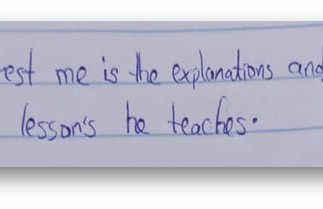 est me is the explanations and
lesson's he teaches.